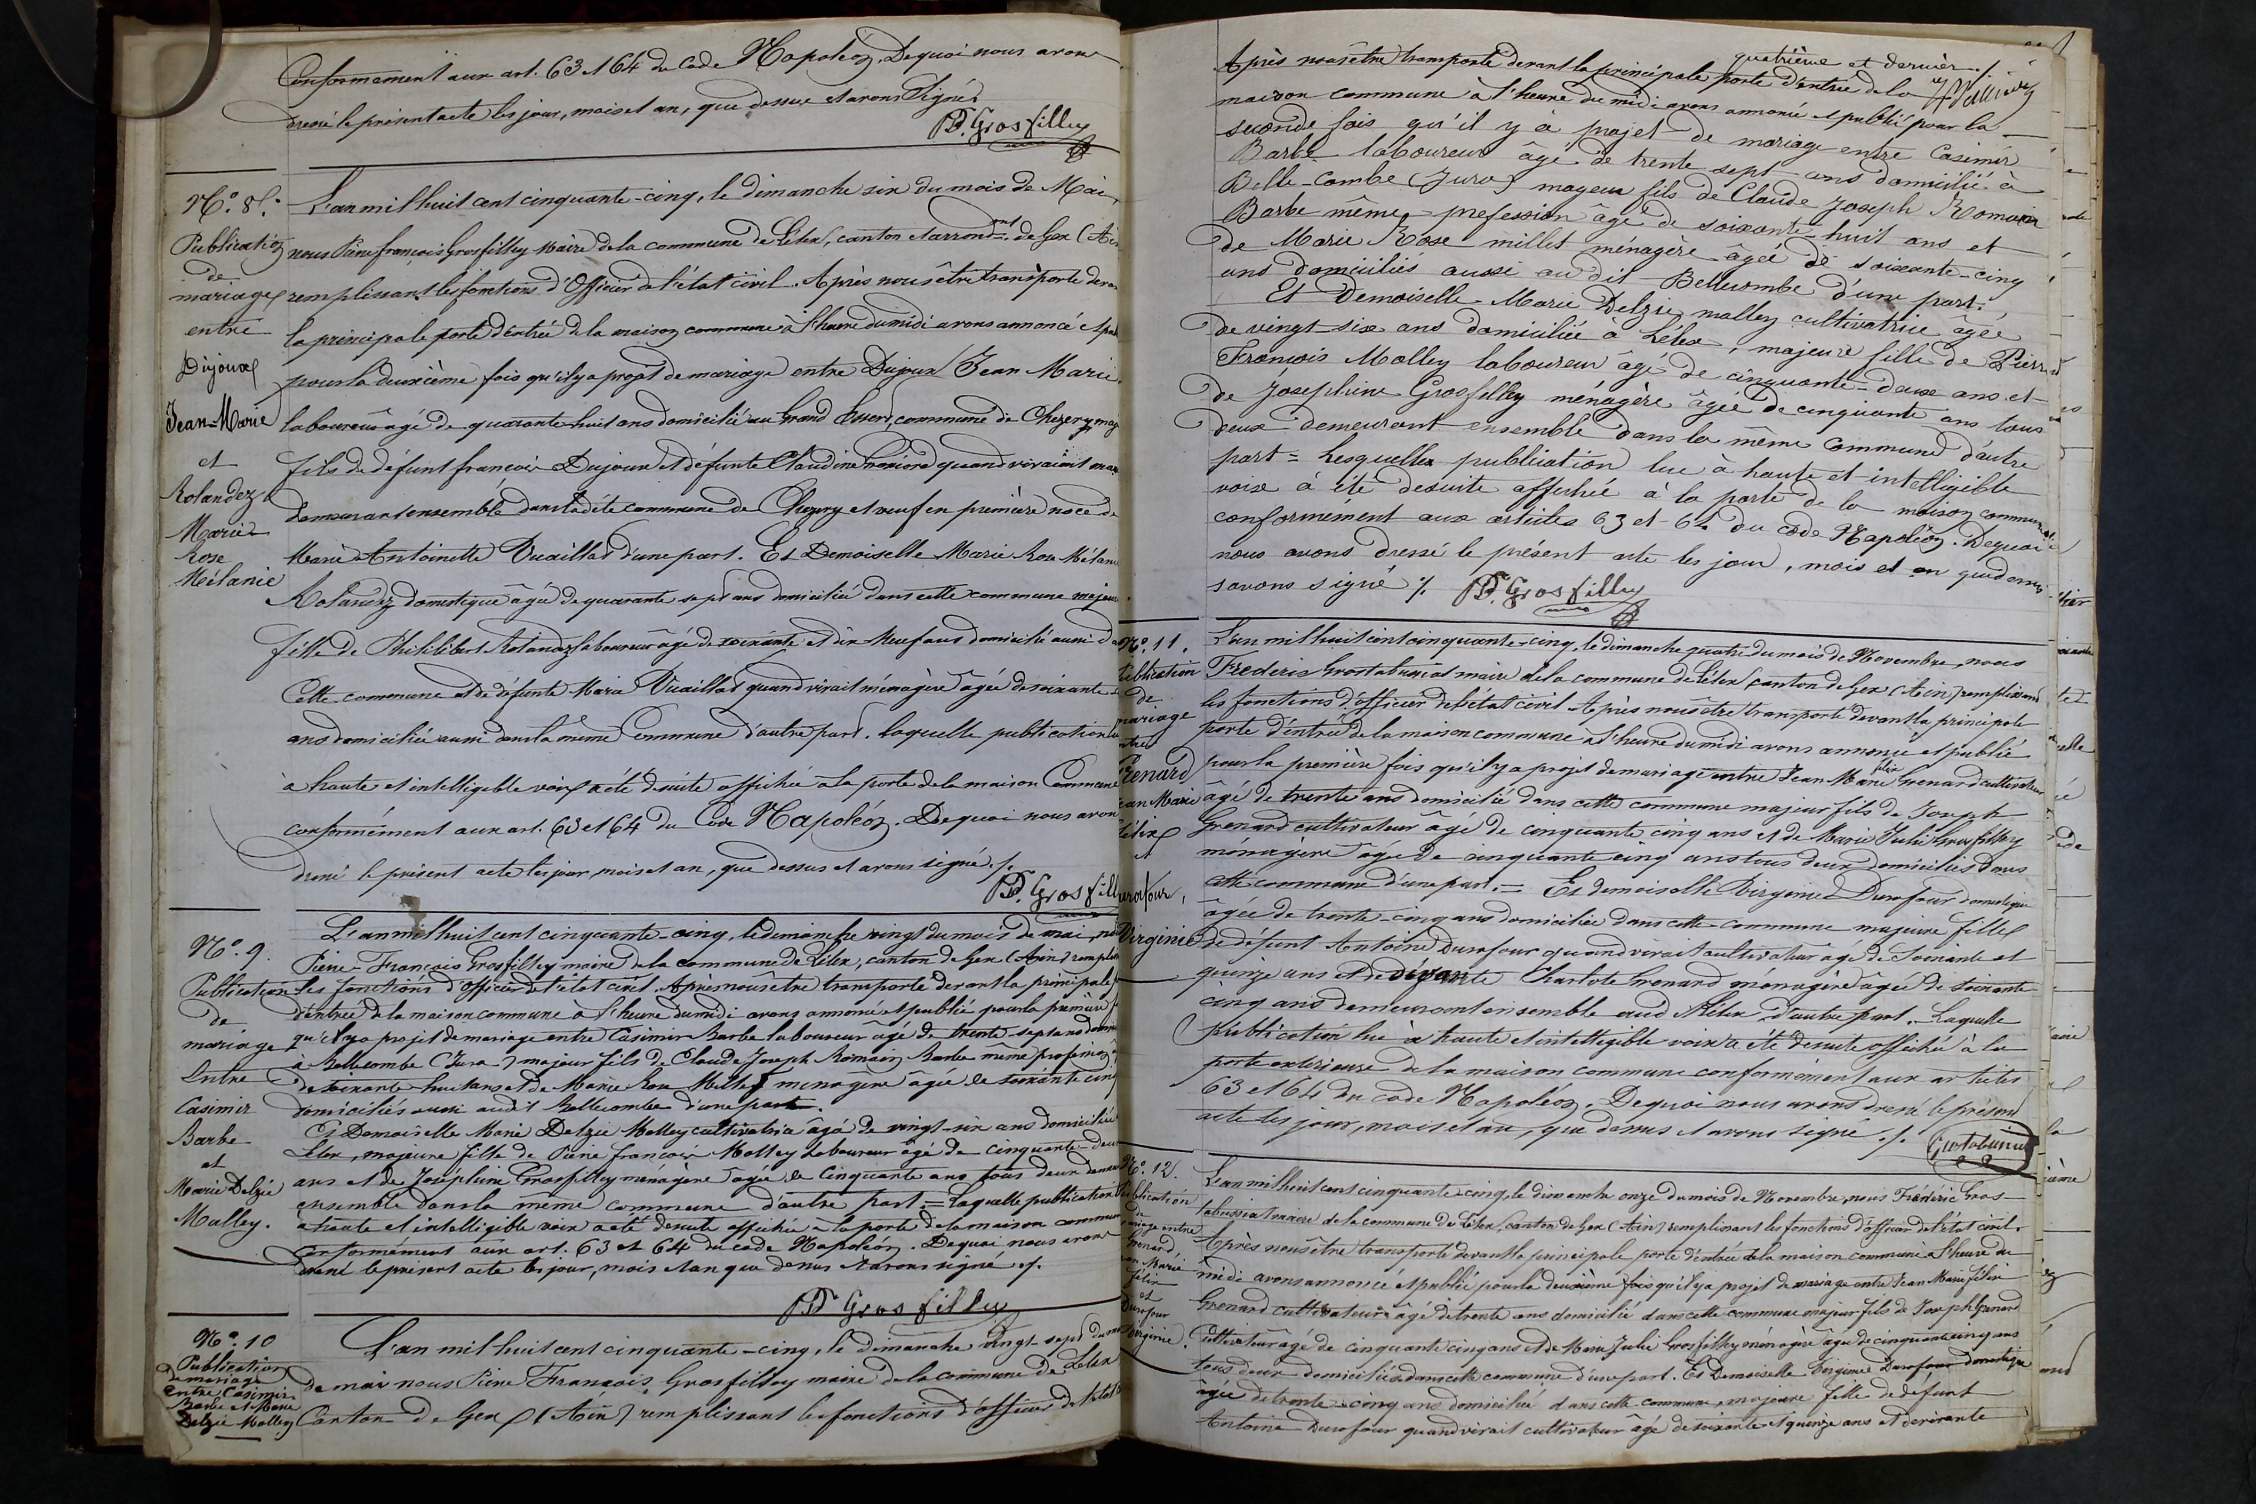 Conformement aux art. 63 et 64 du Code Napoléon. De quoi nous avons
dressé le présent acte les jour, mois et an, que dessus et avons Signé
PF. Grosfilley
N.º 8.
Publication
de
mariage
entre
Dujoux
Jean-Marie
et
Rolandez
Marie
Rose
Mélanie
L'an mil huit cent cinquante-cinq, le dimanche six du mois de Mai,
nous Pierre françois Grosfilley Maire de la commune de Lélex, canton et arrond.nt de Gex (Ain
remplissant les fonctions d'Officier de l'état civil. Après nous être transporté devan
la principale porte d'entrée de la maison commune à l'heure du midi avons annoncé et pub
pour la deuxième fois qu'il y a projet de mariage entre Dujoux Jean Marie
laboureur âgé de quarante-huit ans domicilié au Grand Essert, commune de Chezery maj
fils de défunt françois Dujoux et défunte Claudine quand vivaient
demeurant ensemble dans la dite commune de Chezery et veuf en première noce de
Marie Antoinette Vuaillat d'une part. Et Demoiselle Marie Rose Mélanie
Rolandez domestique âgée de quarante sept ans domiciliée dans cette commune majeur
fille de Philibert Rolandez laboureur âgé de soixante et dix-neuf ans domicilié aussi da
Cette commune et de défunte Marie Vuaillat quand vivait ménagère âgée de soixante
ans domiciliée aussi dans la même Commune d'autre part. laquelle publication
à haute et intelligible voix a été desuite affichée à la porte de la maison Commune
conformément aux art. 63 et 64 du Code Napoléon. De quoi nous avon
dressé le présent acte les jour, mois et an, que dessus et avons signé ./.
PF. Grosfill
N.º 9.
Publication
de
mariage
Entre
Casimir
Barbe
et
Marie Delzie
Malley.
L'an mil huit cent cinquante-cinq, le dimanche vingt du mois de mai, nou
Pierre-François Grosfilley maire de la commune de Lélex, canton de Gex (Ain) rempliss
les fonctions d'officier de l'état civil. Après nous être transporté devant la principale
d'entrée de la maison commune à l'heure du midi avons annoncé et publié pour la première f
qu'il y a projet de mariage entre Casimir Barbe laboureur âgé de trente sept ans domi
à Bellecombe (Jura) majeur fils de Claude Joseph Romain Barbe même profession
de soixante-huit ans et de Marie Rose Millet ménagère âgée de soixante cinq
domiciliés aussi au dit Bellecombe d'une part.
Et Demoiselle Marie Delzie Malley cultivatrice âgée de vingt-six ans domiciliée
Lélex, majeure fille de Pierre françois Malley laboureur âgé de cinquante-deux
ans et de Joséphine Grosfilley ménagère âgée de cinquante ans tous deux demeu
ensemble dans la même commune d'autre part = laquelle publication
à haute et intelligible voix a été desuite affichée à la porte de la maison commun
conformément aux art. 63 et 64 du code Napoléon. De quoi nous avons
dressé le présent acte les jour, mois et an que dessus et avons signé ./.
PF. Grosfilley
Nº. 10
Publication
de mariage
entre Casimir
Barbe et Marie
Delzie Malley
L'an mil huit cent cinquante-cinq, le dimanche vingt-sept du moi
de mai nous Pierre François Grosfilley maire de la commune de Lélex
Canton de Gex (Ain) remplissant les fonctions d'officier de l'état
quatrième et dernier ./.
Après nous être transporté devant la principale porte d'entrée de la
maison commune à l'heure du midi avons annoncé et publié pour la
seconde fois qu'il y à projet de mariage entre Casimir
Barbe laboureur âgé de trente sept ans domicilié à
Belle-combe (Jura) majeur fils de Claude Joseph Romain
Barbe même profession âgé de soixante-huit ans et
de Marie Rose millet ménagère âgée de soixante-cinq
ans domiciliés aussi au dit Bellecombe d'une part.
Et Demoiselle Marie Delzie malley cultivatrice âgée
de vingt-six ans domiciliée à Lélex, majeure fille de Pierre
François Malley laboureur âgé de cinquante-deux ans et
de Joséphine Grosfilley ménagère âgée de cinquante ans tous
deux demeurant ensemble dans la même commune d'autre
part = Lesquelles publication lue à haute et intelligible
voix à été desuite affichée à la porte de la maison commune
conformément aux articles 63 et 64 du code Napoléon. De quoi
nous avons dressé le présent acte les jour, mois et an que dessus
savons signé ./. PF. Grosfilley
Nº. 11.
Publication
de
mariage
entre
Grenard
Jean Marie
félix
et
Durafour,
Virginie
L'an mil huit cent cinquante-cinq, le dimanche quatre du mois de Novembre, nous
Frederic Grostabussiat maire de la commune de Lélex, canton de Gex (Ain) remplissant
les fonctions d'officier de l'état civil Après nous être transporté devant la principale
porte d'entrée de la maison commune à l'heure du midi avons annoncé et publié
pour la première fois qu'il y a projet de mariage entre Jean Marie félix Grenard cultivateur
âgé de trente ans domicilié dans cette commune majeur fils de Joseph
Grenard cultivateur âgé de cinquante cinq ans et de Marie Julie Grosfilley
ménagère âgée de cinquante cinq ans tous deux domiciliés dans
cette commune d'une part. = Et demoiselle Virginie Durafour domestique
âgée de trente-cinq ans domiciliée dans cette commune majeure fille
de défunt Antoine Durafour quand vivait cultivateur âgé de Soixante et
quinze ans et de vivante Charlote Grenard ménagère âgée de soixante
cinq ans demeurant ensemble au d. Lélex, d'autre part. Laquelle
publication lue à haute et intelligible voix a été desuite affichée à la
porte extérieure de la maison commune conformément aux articles
63 et 64 du code Napoléon. De quoi nous avons dressé le présent
acte les jour, mois et an, que dessus et avons signé ./. Grostabussiat
Nº. 12.
Publication
de
mariage entre
Grenard
Jean Marie
félix
et
Durafour
Virginie.
L'an mil huit cent cinquante-cinq, le dimanche onze du mois de Novembre, nous Frédéric Gros-
tabussiat maire de la commune de Lélex, Canton de Gex (Ain) remplissant les fonctions d'officier de l'état civil.
Après nous être transporté devant la principale porte d'entrée de la maison commune à l'heure du
midi avons annoncé et publié pour la deuxième fois qu'il y a projet de mariage entre Jean Marie félix
Grenard cultivateur âgé de trente ans domicilié dans cette commune majeur fils de Joseph Grenard
Cultivateur âgé de cinquante cinq ans et de Marie Julie Grosfilley ménagère âgée de cinquante cinq ans
tous deux domiciliés dans cette commune d'une part. Et Demoiselle Virginie Durafour domestique
âgée de trente-cinq ans domiciliée dans cette commune, majeure fille de défunt
Antoine Durafour quand vivait cultivateur âgé de soixante et quinze ans et de vivante